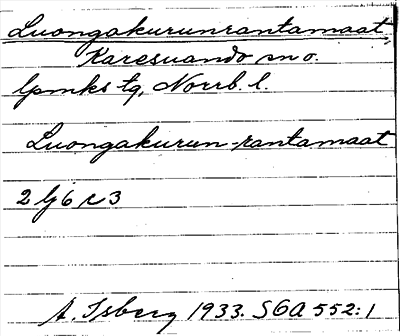 Luongakurunrantamaat,
Karesuando sn o.
lpmks tg, Norrb. l.
Luongakurun-rantamaat
2 lj 6 r 3
A. Isberg 1933. SGA 552:1